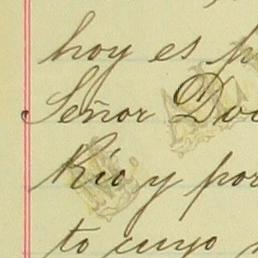 hoy es
Señor
Río y por
to cuyo